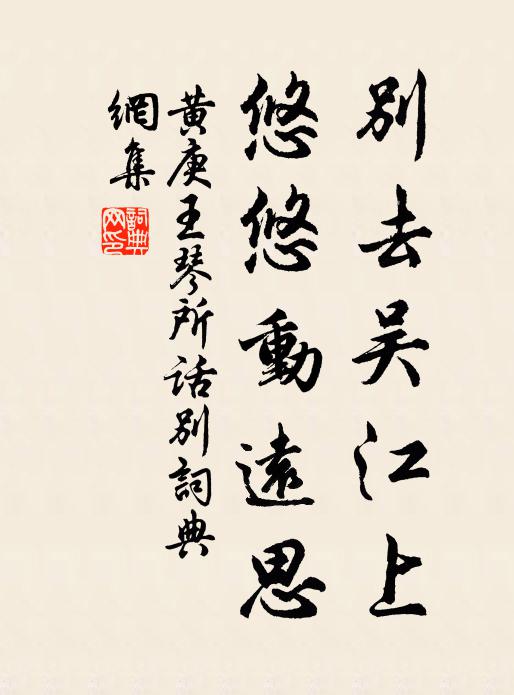 别去吴江上
悠悠動遠思
黄庚王琴所话别詞典
網集
詞典
网印